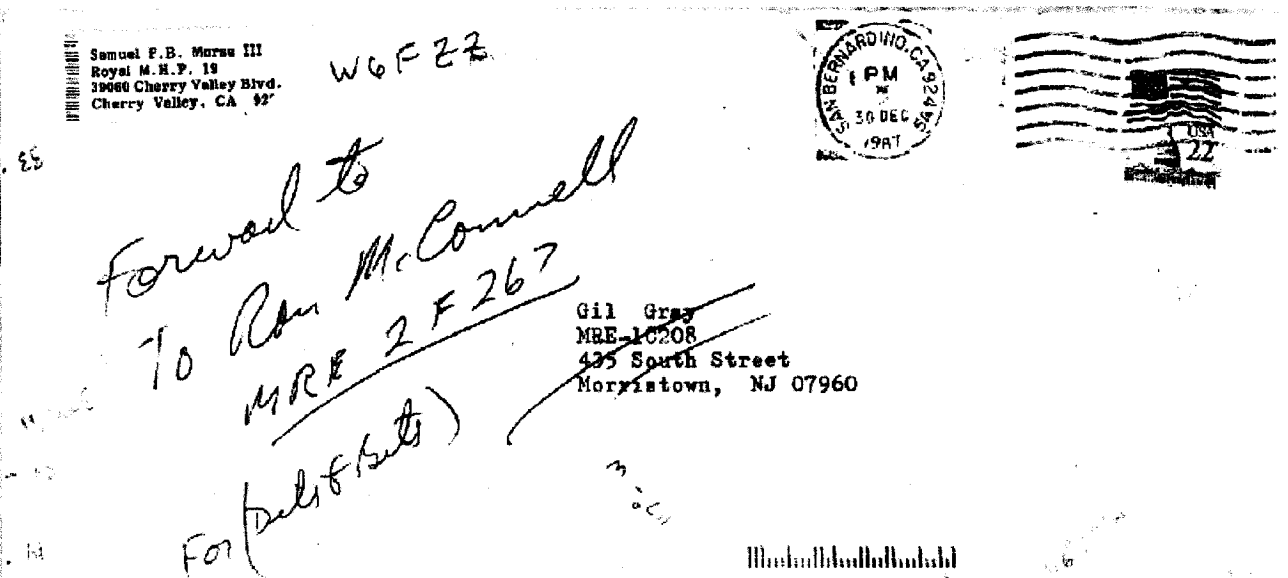 Samuel F.B. Morse III
Royal M.H.P. 19
39060 Cherry Valley Blvd.
Cherry Valley, CA 92
W6FZZ
SAN BERNARDINO, CA 924
PM
30 DEC
1987
USA
22
Forward to
To Ron McConnell
MRE 2F267
For (Dits & Bits)
Gil Gray
MRE-1C208
435 South Street
Morristown, NJ 07960